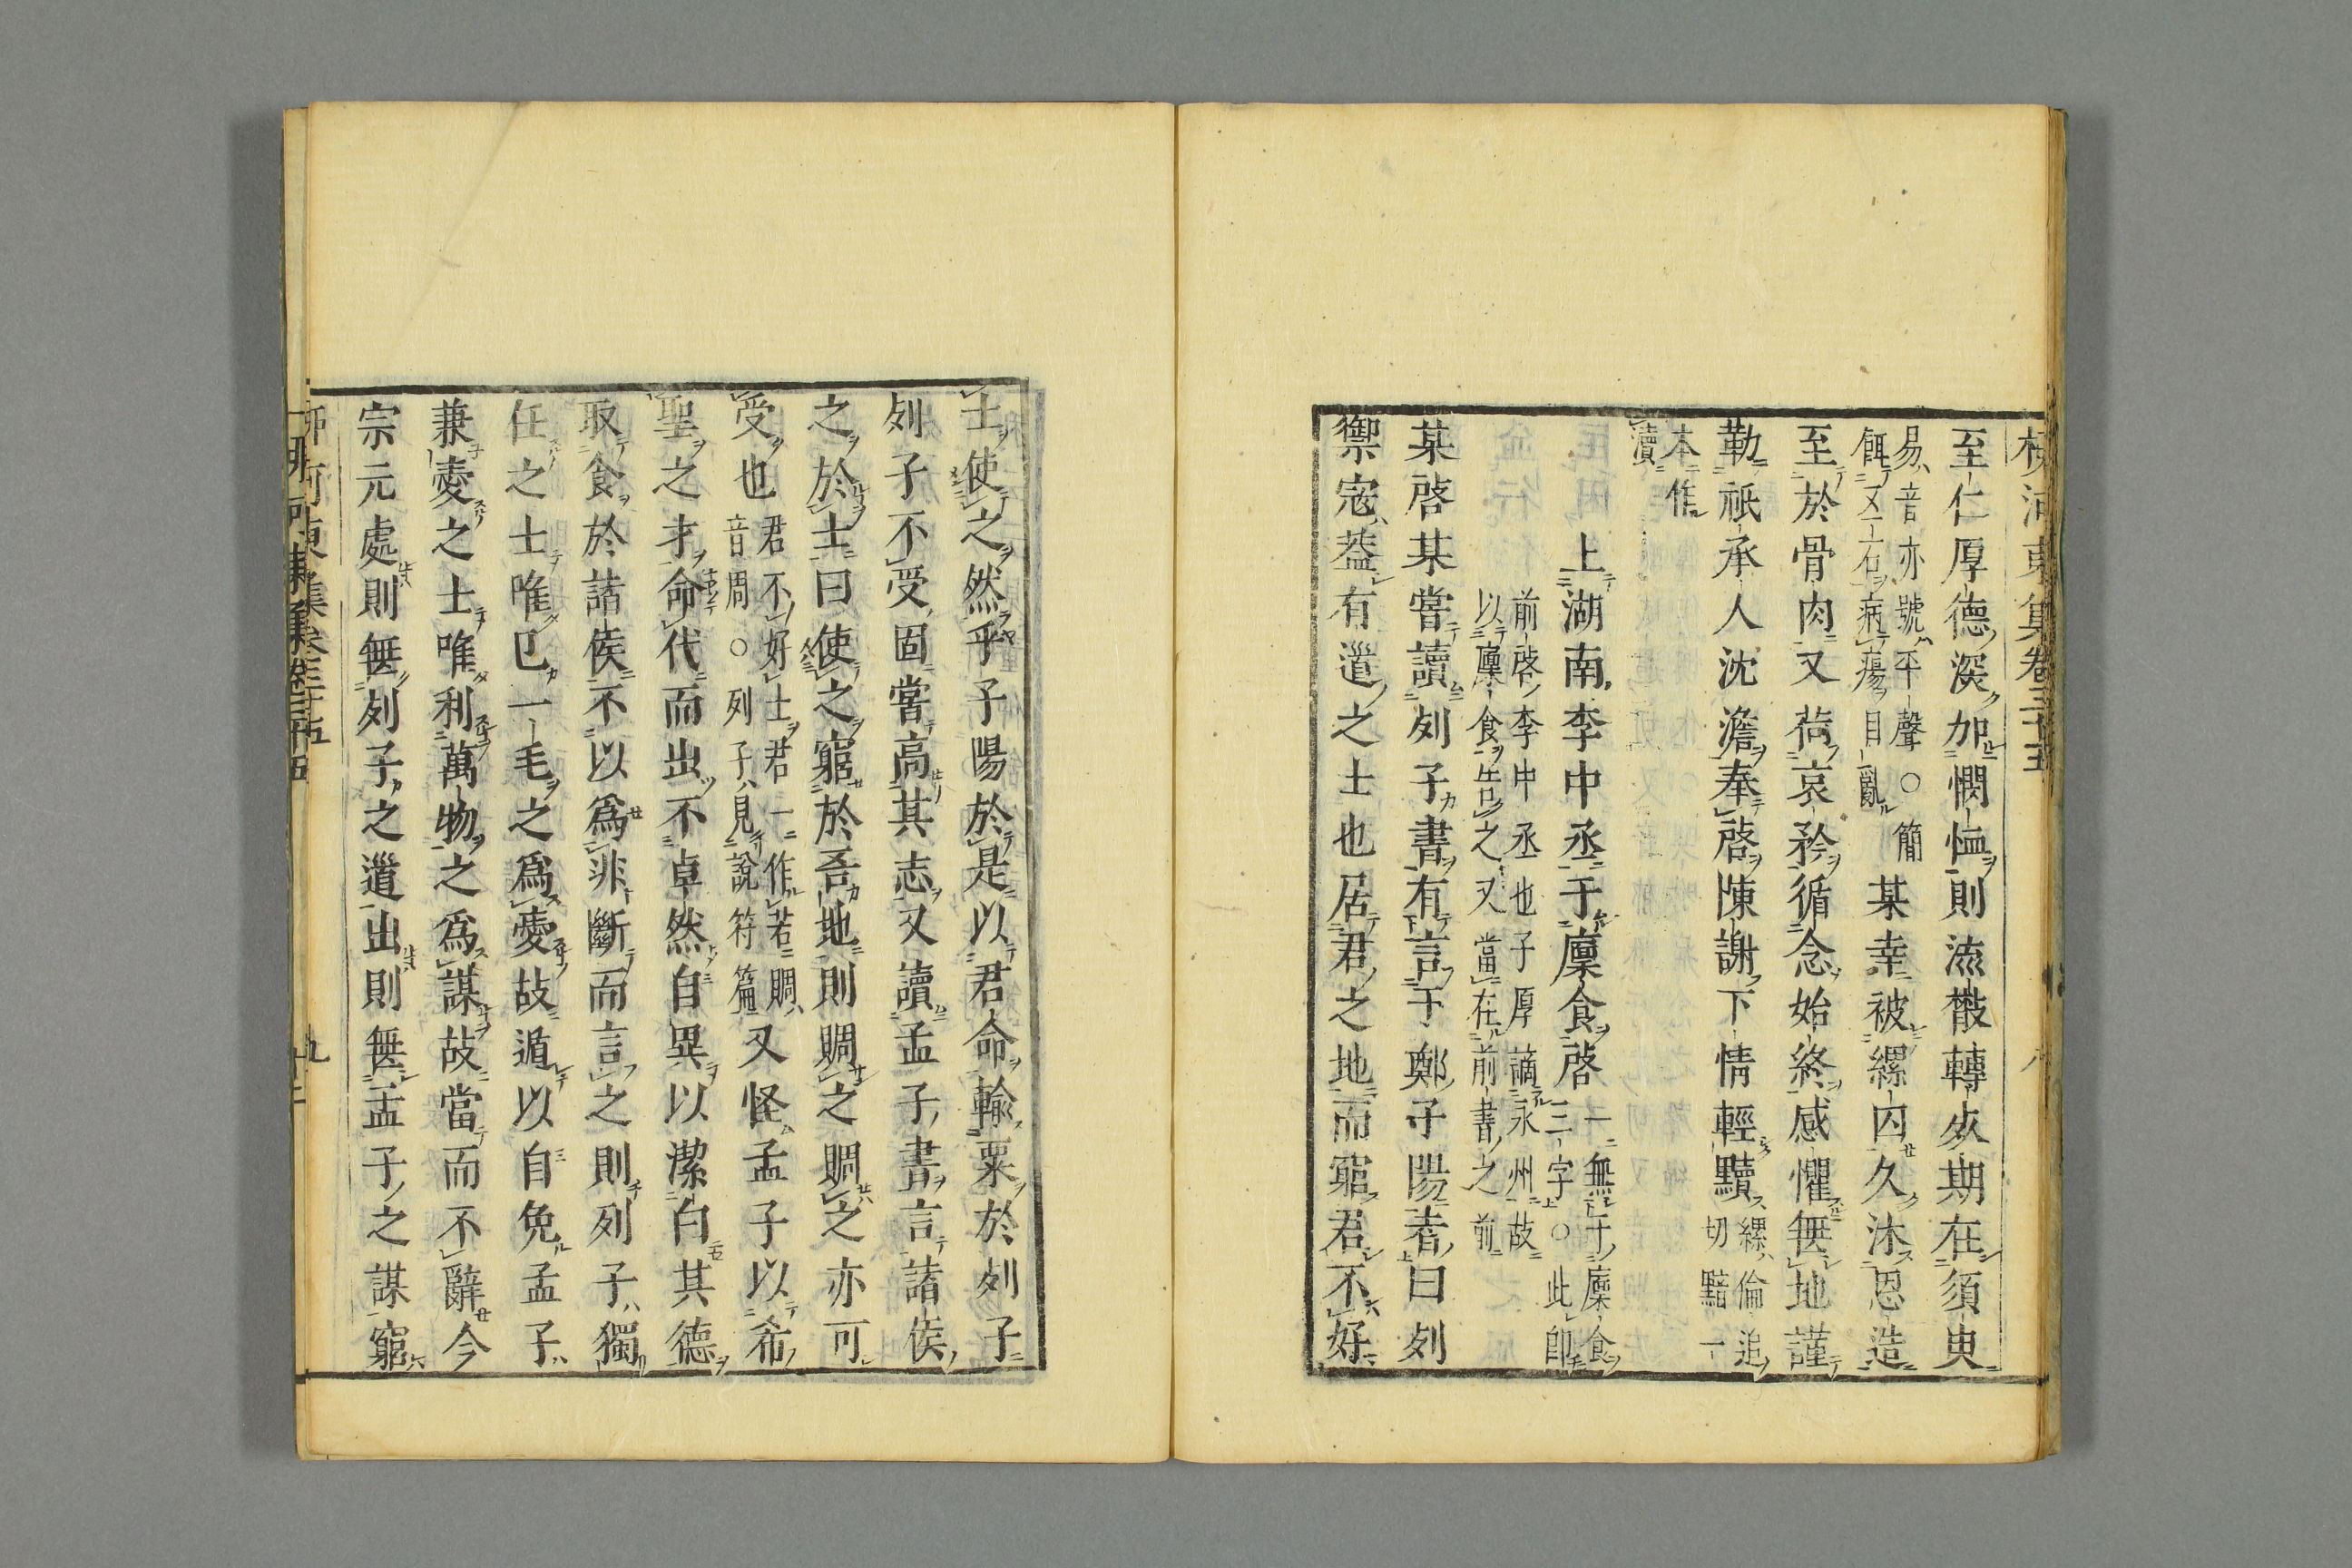 至仁厚德深加憫恤則流散轉死期在須臾
易音亦號平聲○簡
餌又工石病瘍目亂
某幸被縲囚久沐恩造
至於骨肉又荷哀矜循念始終感懼無地謹
勒祇承人沈澹奉啓陳謝下情輕黷
縲倫追
切黯一
本作
瀆
上湖南李中丞于廩食啓
一無于廩食
三字○此卽
前啓李中丞也子厚謫永州故
以廩食告之又當在前書之前
某啓某嘗讀列子書有言于鄭子陽者曰列
禦寇蓋有道之士也居君之地而窮君不好
士使之然乎子陽於是以君命輸粟於列子
列子不受固嘗高其志又讀孟子書言諸侯
之於士曰使之窮於吾地則賙之賙之亦可
受也
君不好士君一作若賙
音周○列子見說符篇
又怪孟子以希
聖之才命代而出不卓然自異以潔白其德
取食於諸侯不以爲非斷而言之則列子獨
任之士唯己一毛之爲愛故遁以自免孟子
兼愛之士唯利萬物之爲謀故當而不辭今
宗元處則無列子之道出則無孟子之謀窮